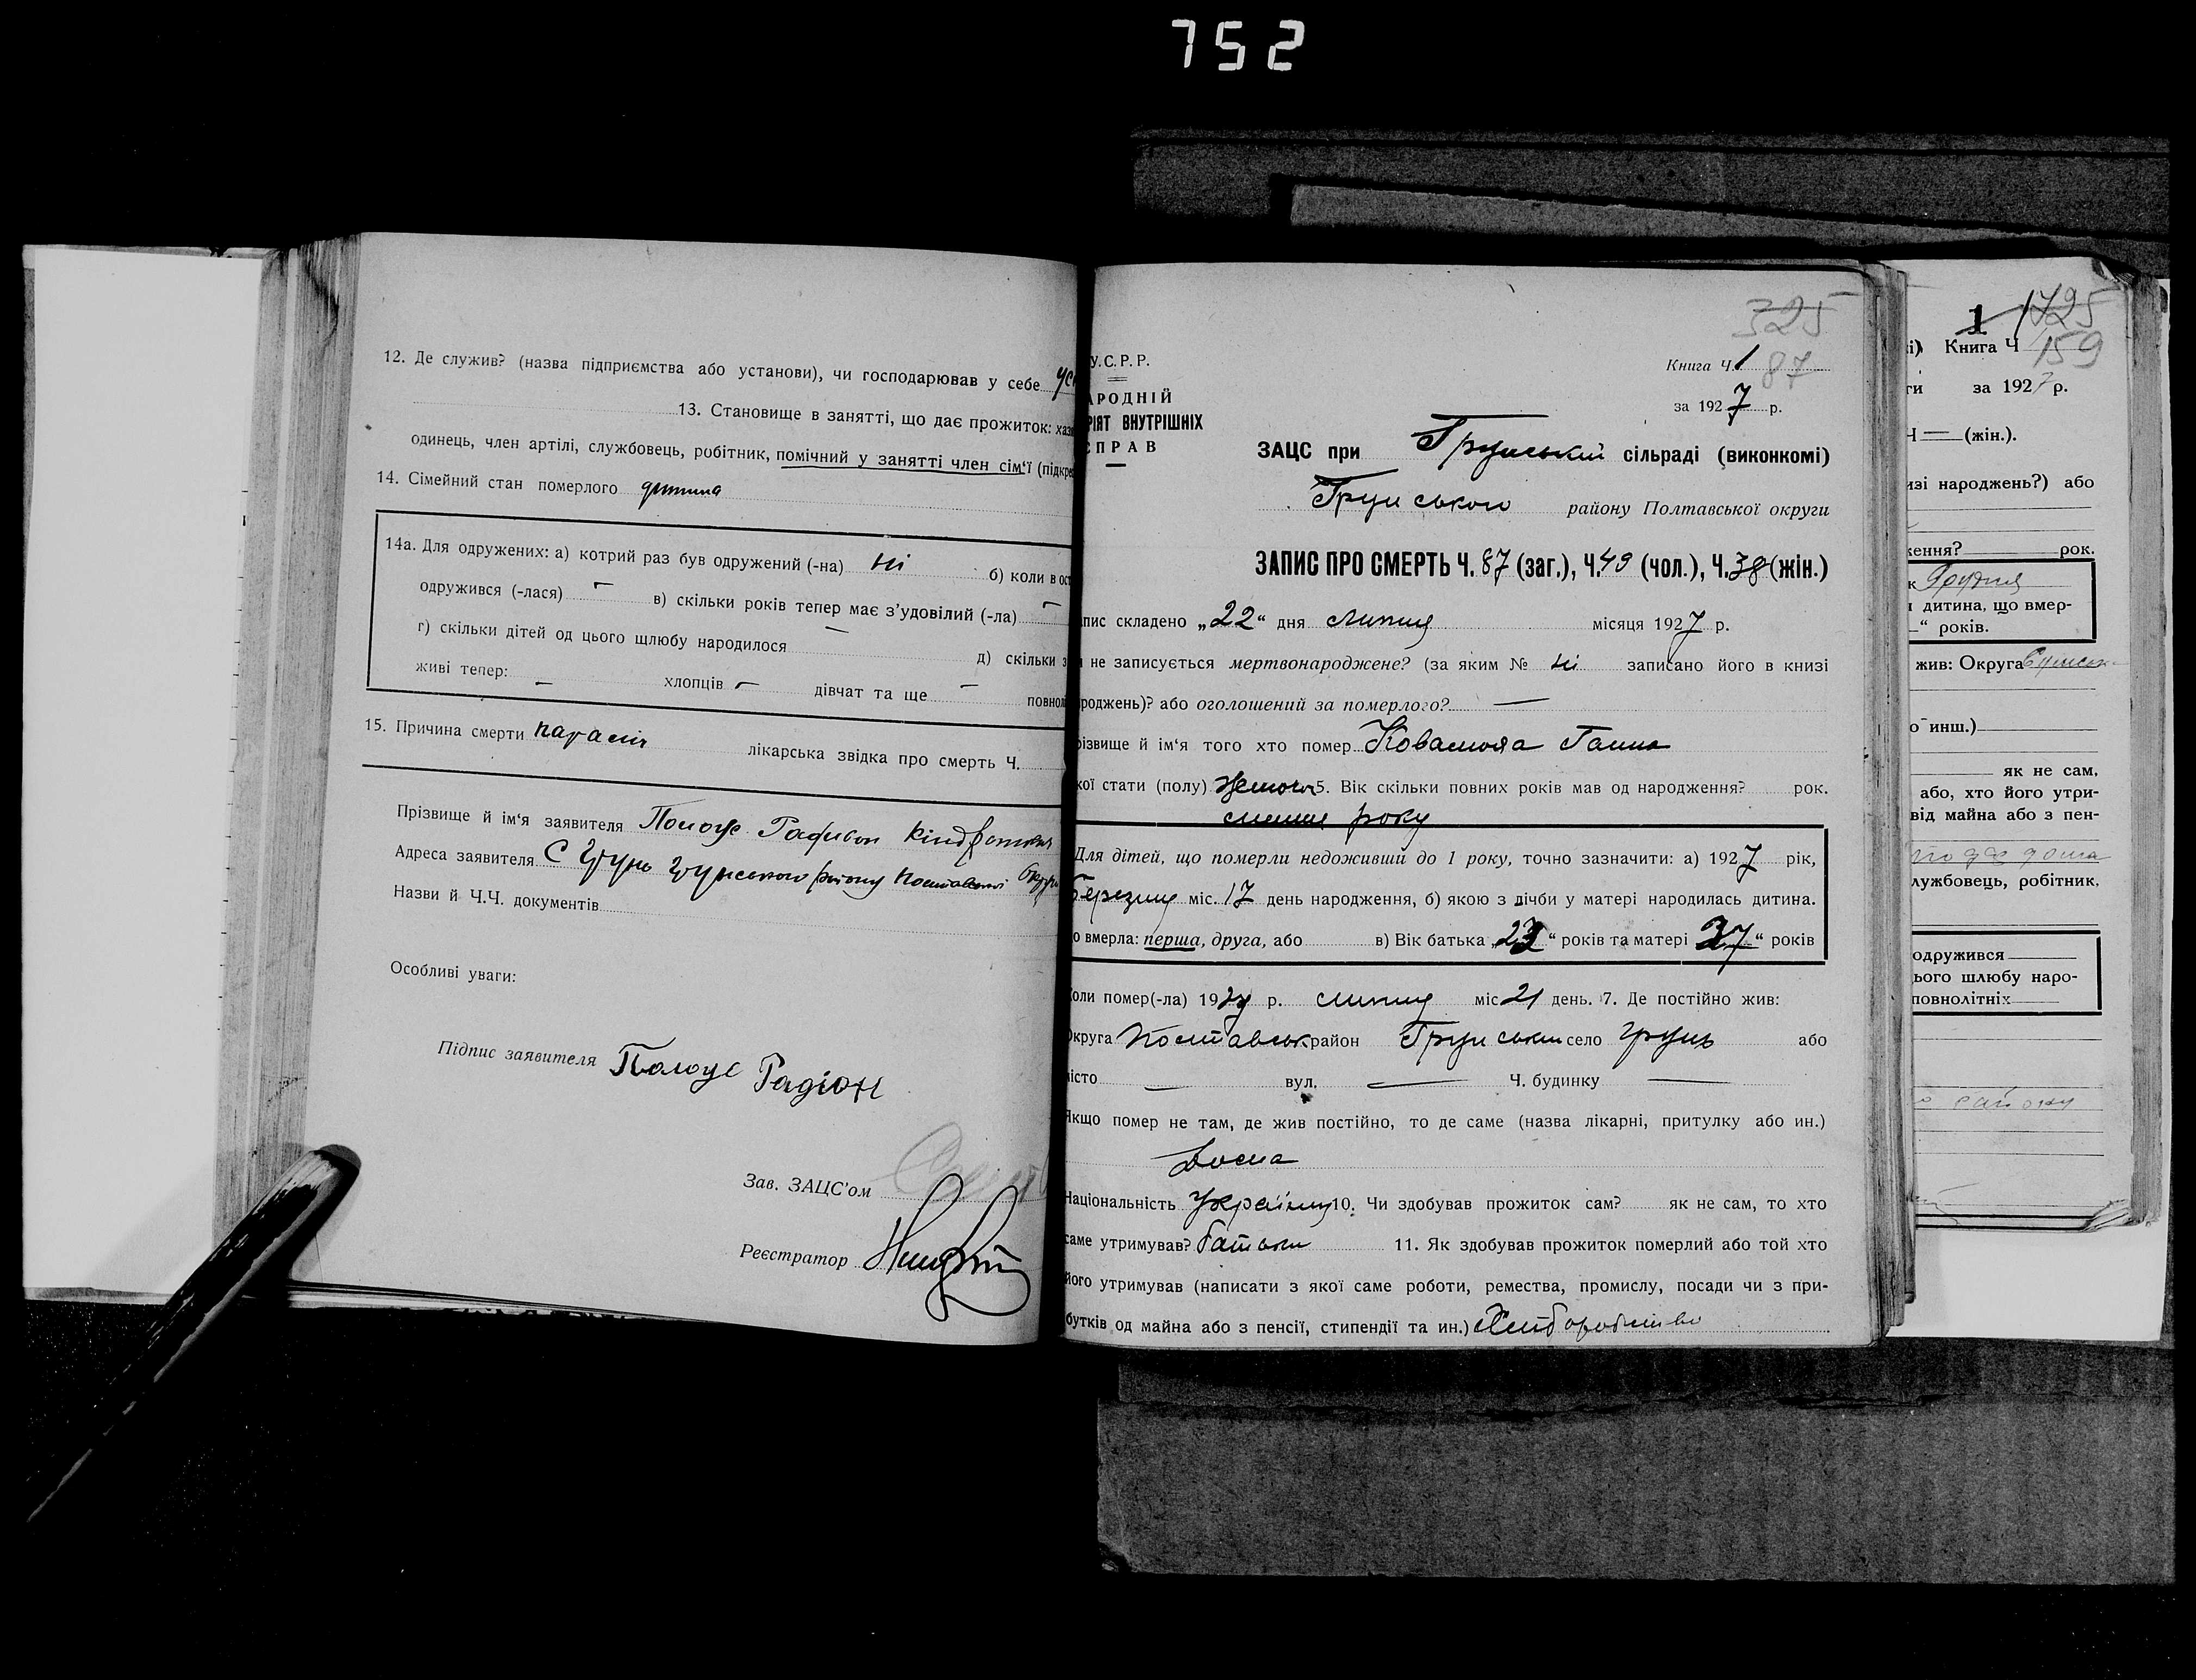 752
12. Де служив? (назва підприємства або установи), чи господарював у себе
13. Становище в занятті, що дає прожиток: хаз
одинець, член артілі, службовець, робітник, помічний у занятті член сім'ї (підкре
14. Сімейний стан померлого дитина
14а. Для одружених: а) котрий раз був одружений (-на) ні б) коли в ост
одружився (-лася) — в) скільки років тепер має з'удовілий (-ла) —
г) скільки дітей од цього шлюбу народилося — д) скільки з
живі тепер: — хлопців — дівчат та ще — повнол
15. Причина смерти лікарська звідка про смерть Ч.
Прізвище й ім'я заявителя
Адреса заявителя С Грунь Грунського району Полтавської округи
Назви й Ч.Ч. документів
Особливі уваги:
Підпис заявителя Радіон
Зав. ЗАЦС'ом
Реєстратор
325
У.С.Р.Р.
АРОДНІЙ
РІЯТ ВНУТРІШНІХ
СПРАВ
Книга Ч. 1 87
за 1927 р.
ЗАЦС при Грунській сільраді (виконкомі)
Грунського району Полтавської округи
ЗАПИС ПРО СМЕРТЬ Ч. 87 (заг.), Ч. 49 (чол.), Ч. 38 (жін.)
пис складено „22“ дня липня місяця 1927 р.
и не записується мертвонароджене? (за яким № ні записано його в книзі
роджень)? або оголошений за померлого? —
різвище й ім'я того хто помер Ганна
кої стати (полу) 5. Вік скільки повних років мав од народження? рок.
менше року
Для дітей, що померли недоживши до 1 року, точно зазначити: а) 1927 рік,
Березня міс. 17 день народження, б) якою з лічби у матері народилась дитина.
о вмерла: перша, друга, або в) Вік батька „23“ років та матері „27“ років
Коли помер(-ла) 1927 р. липня міс 21 день. 7. Де постійно жив:
Округа Полтавськ район Грунський село Грунь або
місто — вул. — Ч. будинку —
Якщо помер не там, де жив постійно, то де саме (назва лікарні, притулку або ин.)
Дома
Національність 10. Чи здобував прожиток сам? як не сам, то хто
саме утримував? батьки 11. Як здобував прожиток померлий або той хто
його утримував (написати з якої саме роботи, ремества, промислу, посади чи з при-
бутків од майна або з пенсії, стипендії та ин.) Хліборобство
1 1725
і) Книга Ч 159
ти за 1927 р.
Ч — (жін.).
изі народжень?) або
ження? рок.
к
и дитина, що вмер-
“ років.
жив: Округа
о инш.)
як не сам,
або, хто його утри-
від майна або з пен-
лужбовець, робітник,
одружився
ього шлюбу наро-
повнолітніх